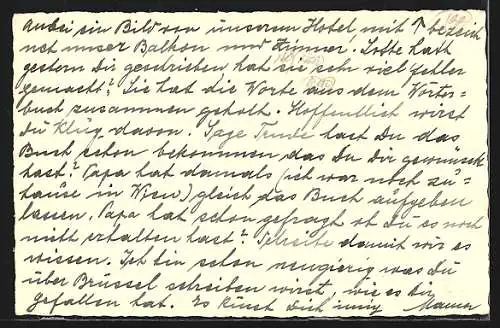 Anbei ein Bild von unserem Hotel mit ↑ bezeich
net unser Balkon und Zimmer. Lotte hat
gestern Dir geschrieben hat sie sehr viel Fehler
gemacht? Sie hat die Worte aus dem Wörter=
buch zusammen geholt. Hoffentlich wirst
Du klug davon. Sage Trude hast Du das
Buch schon bekommen das Du Dir gewünscht
hast? Papa hat damals (ich war noch zu=
hause in Wien) gleich das Buch aufgeben
lassen. Papa hat schon gefragt ob Du es noch
nicht erhalten hast? Schreibe damit wir es
wissen. Ich bin schon neugierig was Du
über Brüssel schreiben wirst, wie es Dir
gefallen hat. Es küsst Dich innig Mama